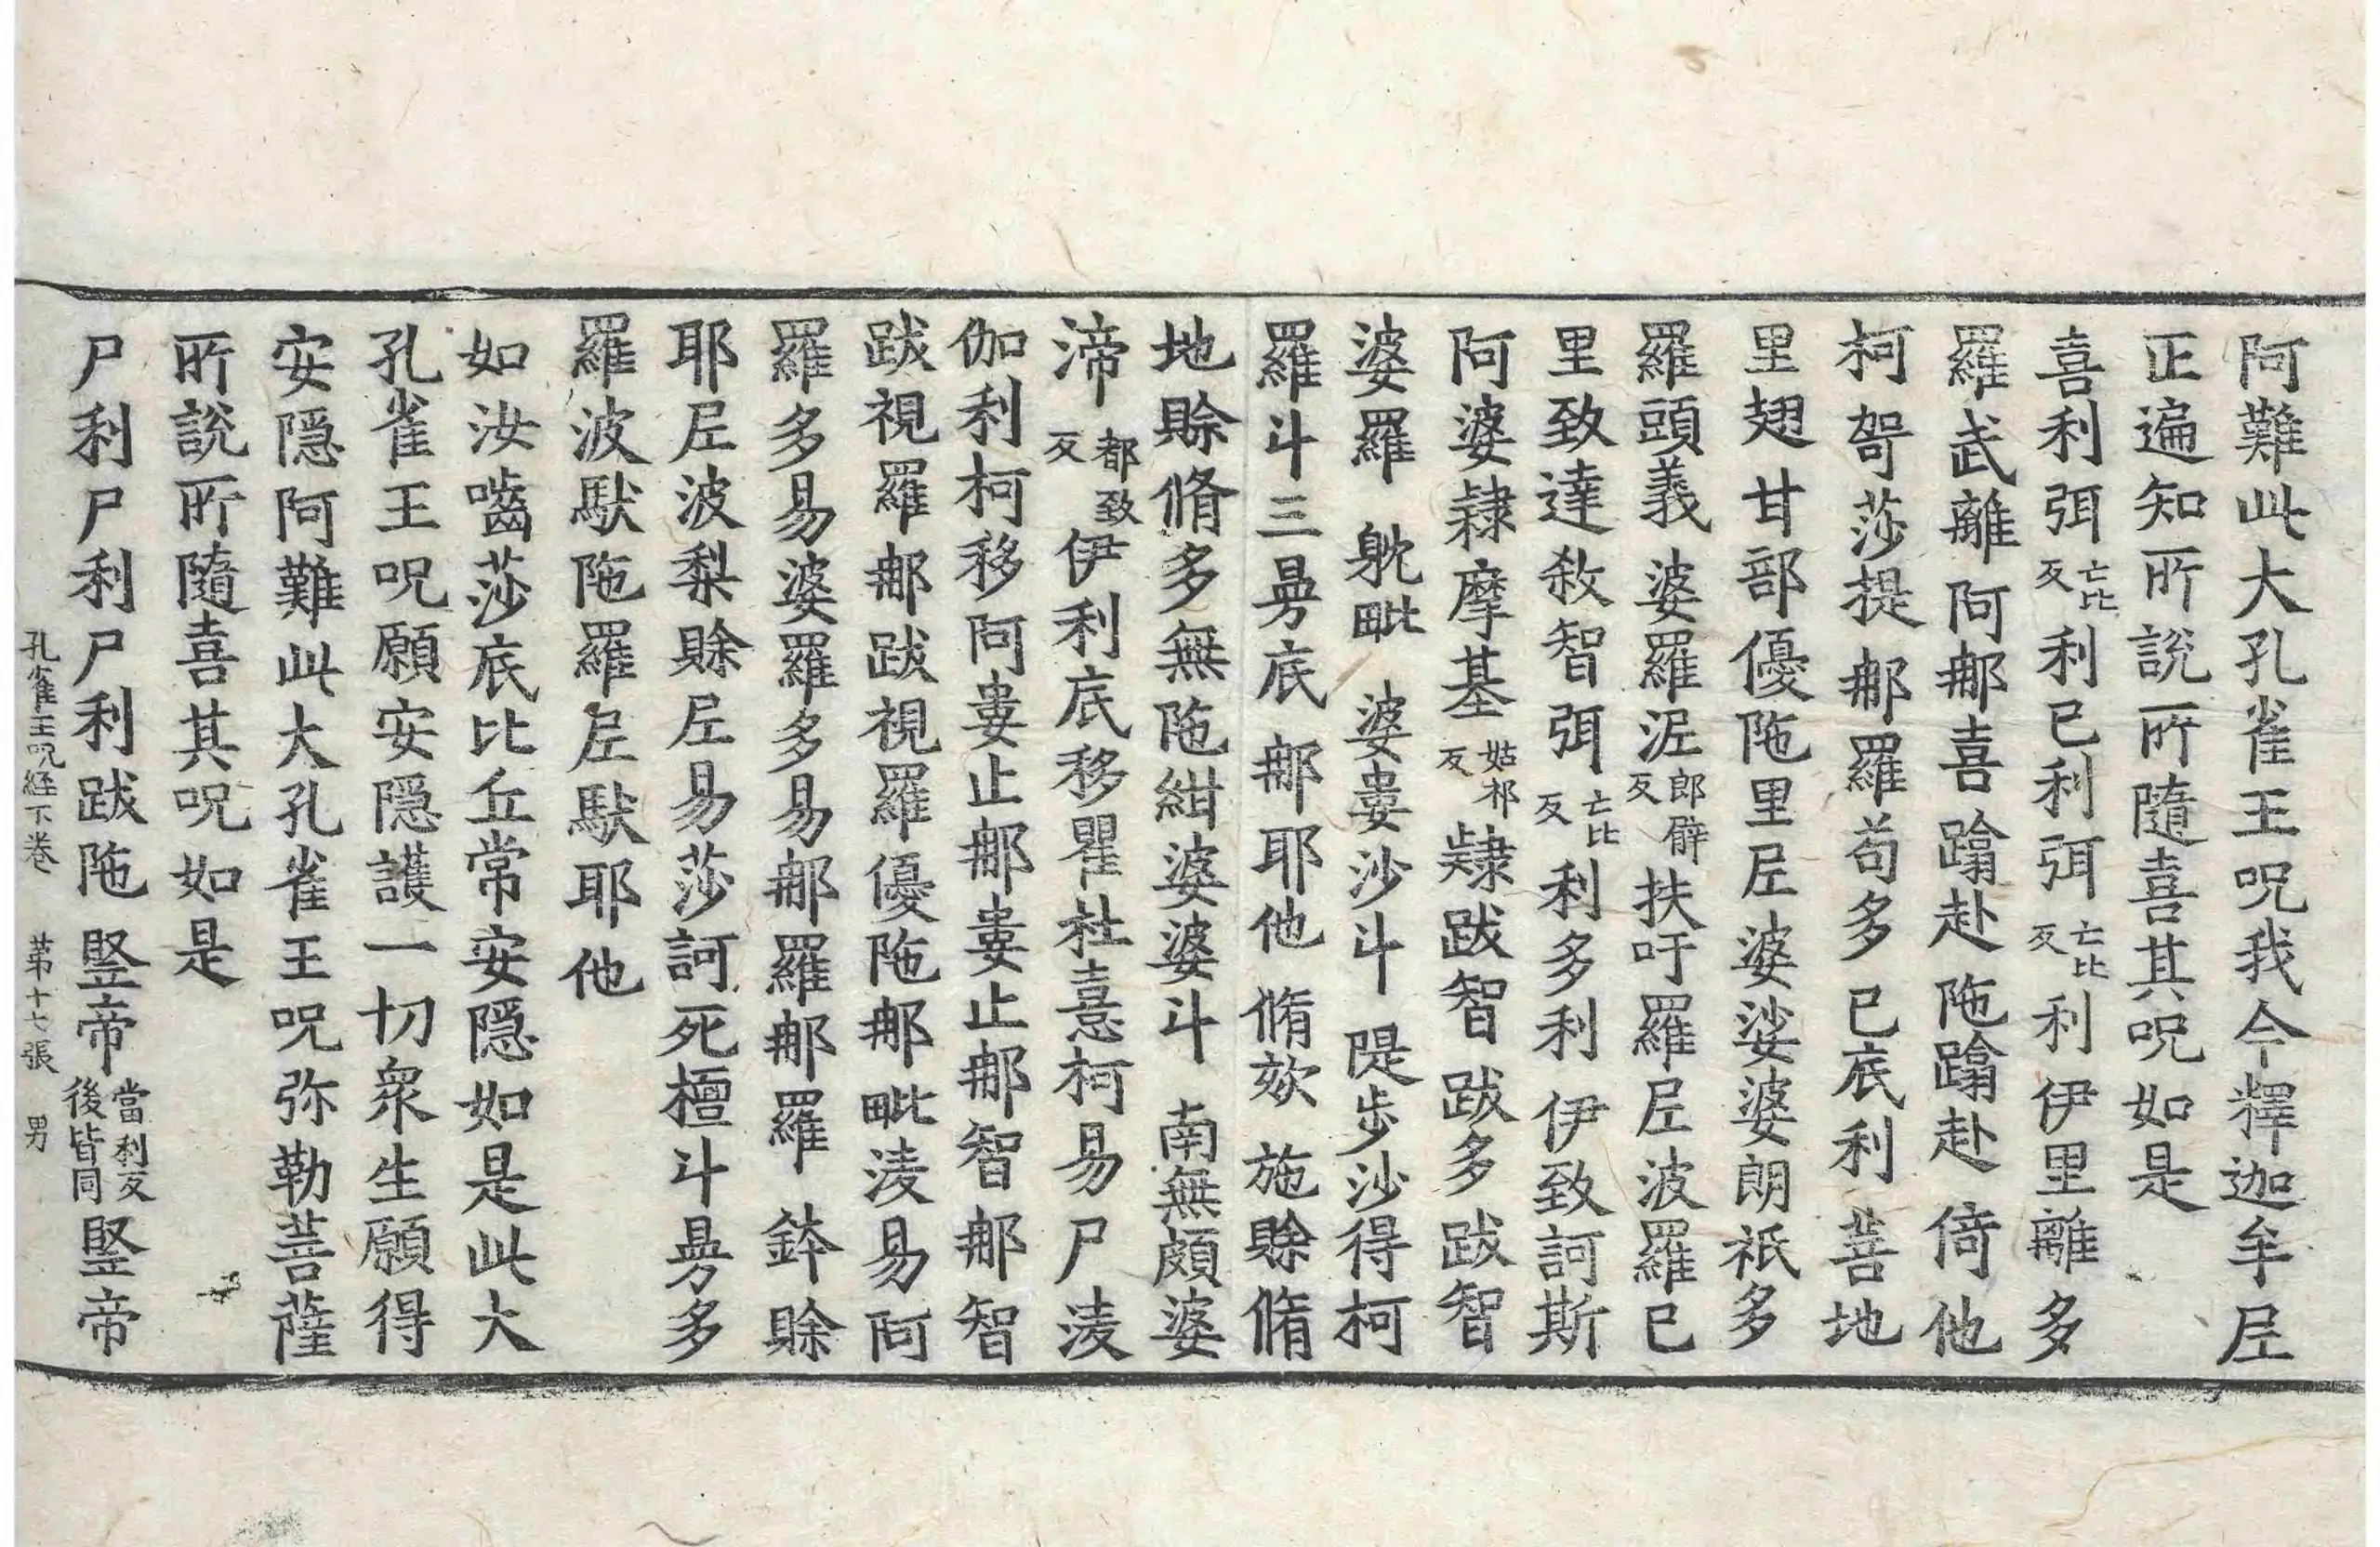 阿難此大孔雀王呪我今釋迦牟尼
正遍知所說所隨喜其呪如是
喜利弭亡比反利已利弭亡比反利伊里離多
羅武離阿那喜蹹赴陁蹹赴倚他
柯哿莎提那羅苟多已底利菩地
里翅甘部優陁里尼婆娑婆朗祇多
羅頭義婆羅泥郎辟反扶吁羅尼波羅已
里致達敘智弭亡比反利多利伊致訶斯
阿婆隷摩基姑祁反隷跋智跋多跋智
婆羅躭毗婆婁沙斗隄步沙得柯
羅斗三曼底那耶他脩欬施賒脩
地賒脩多無陁紺婆婆斗南無頗婆
渧都致反伊利底移瞿社憙柯易尸淩
伽利柯移阿婁止那婁止那智那智
跋視羅那跋視羅優陁那毗淩易阿
羅多易婆羅多易那羅那羅鉢賒
耶尼波梨賒尼易莎訶死檀斗曼多
羅波䭾陁羅尼䭾耶他
如汝嚙莎底比丘常安隱如是此大
孔雀王呪願安隱護一切衆生願得
安隱阿難此大孔雀王呪弥勒菩薩
所說所隨喜其呪如是
尸利尸利尸利跋陁竪帝當利反後皆同竪帝
孔雀王呪經下卷 第十七張 男